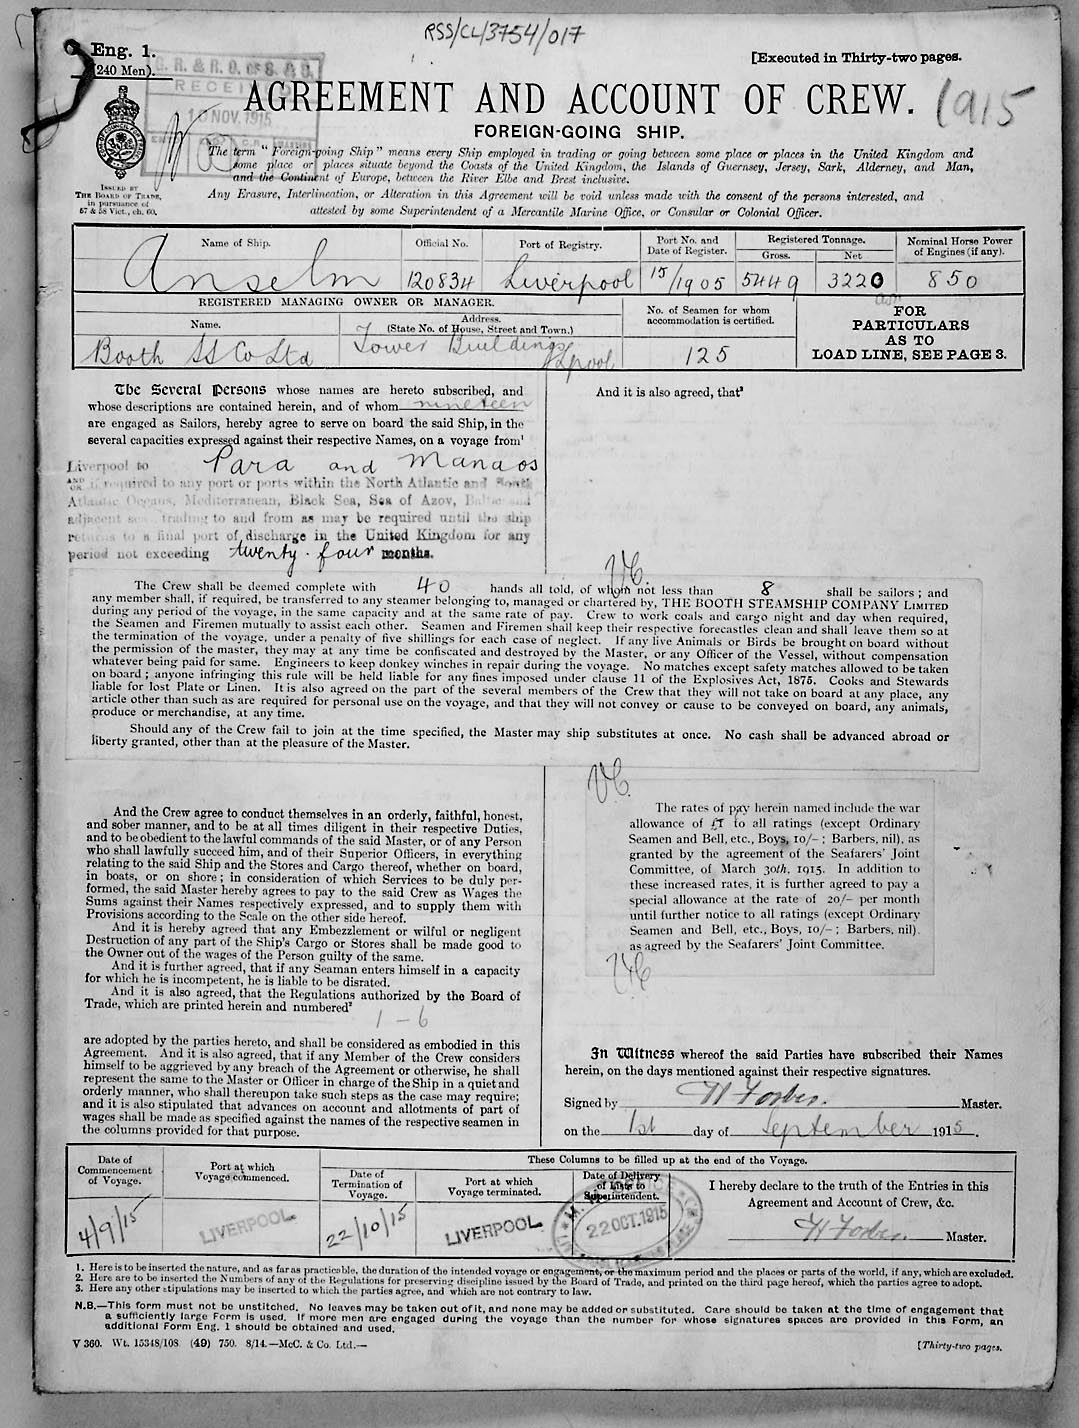 RSS/CL/3754/017
Eng. 1.
(240 Men).
[Executed in Thirty-two pages.
RECEIVED
10 NOV. 1915
AGREEMENT AND ACCOUNT OF CREW.
1915
FOREIGN-GOING SHIP.
The term "Foreign-going Ship" means every Ship employed in trading or going between some place or places in the United Kingdom and
some place or places situate beyond the Coasts of the United Kingdom, the Islands of Guernsey, Jersey, Sark, Alderney, and Man,
and the Continent of Europe, between the River Elbe and Brest inclusive.
Any Erasure, Interlineation, or Alteration in this Agreement will be void unless made with the consent of the persons interested, and
attested by some Superintendent of a Mercantile Marine Office, or Consular or Colonial Officer.
ISSUED BY
THE BOARD OF TRADE,
in pursuance of
57 & 58 Vict., ch. 60.
Name of Ship.
Official No.
Port of Registry.
Port No. and
Date of Register.
Registered Tonnage.
Gross.
Net
Nominal Horse Power
of Engines (if any).
Anselm
120834
Liverpool
15/1905
5449
3220
850
REGISTERED MANAGING OWNER OR MANAGER.
Name.
Address.
(State No. of House, Street and Town.)
No. of Seamen for whom
accommodation is certified.
FOR
PARTICULARS
AS TO
LOAD LINE, SEE PAGE 3.
Booth SS Co Ltd
Tower Buildings
Lpool
125
The Several Persons whose names are hereto subscribed, and
whose descriptions are contained herein, and of whom nineteen
are engaged as Sailors, hereby agree to serve on board the said Ship, in the
several capacities expressed against their respective Names, on a voyage from¹
Liverpool to Para and Manaos
AND
OR if required to any port or ports within the North Atlantic and South
Atlantic Oceans, Mediterranean, Black Sea, Sea of Azov, Baltic and
adjacent seas trading to and from as may be required until the ship
returns to a final port of discharge in the United Kingdom for any
period not exceeding twenty-four months.
And it is also agreed, that³
The Crew shall be deemed complete with 40 hands all told, of whom not less than 8 shall be sailors; and
any member shall, if required, be transferred to any steamer belonging to, managed or chartered by, THE BOOTH STEAMSHIP COMPANY LIMITED
during any period of the voyage, in the same capacity and at the same rate of pay. Crew to work coals and cargo night and day when required,
the Seamen and Firemen mutually to assist each other. Seamen and Firemen shall keep their respective forecastles clean and shall leave them so at
the termination of the voyage, under a penalty of five shillings for each case of neglect. If any live Animals or Birds be brought on board without
the permission of the master, they may at any time be confiscated and destroyed by the Master, or any Officer of the Vessel, without compensation
whatever being paid for same. Engineers to keep donkey winches in repair during the voyage. No matches except safety matches allowed to be taken
on board; anyone infringing this rule will be held liable for any fines imposed under clause 11 of the Explosives Act, 1875. Cooks and Stewards
liable for lost Plate or Linen. It is also agreed on the part of the several members of the Crew that they will not take on board at any place, any
article other than such as are required for personal use on the voyage, and that they will not convey or cause to be conveyed on board, any animals,
produce or merchandise, at any time.
Should any of the Crew fail to join at the time specified, the Master may ship substitutes at once. No cash shall be advanced abroad or
liberty granted, other than at the pleasure of the Master.
And the Crew agree to conduct themselves in an orderly, faithful, honest,
and sober manner, and to be at all times diligent in their respective Duties,
and to be obedient to the lawful commands of the said Master, or of any Person
who shall lawfully succeed him, and of their Superior Officers, in everything
relating to the said Ship and the Stores and Cargo thereof, whether on board,
in boats, or on shore; in consideration of which Services to be duly per-
formed, the said Master hereby agrees to pay to the said Crew as Wages the
Sums against their Names respectively expressed, and to supply them with
Provisions according to the Scale on the other side hereof.
And it is hereby agreed that any Embezzlement or wilful or negligent
Destruction of any part of the Ship's Cargo or Stores shall be made good to
the Owner out of the wages of the Person guilty of the same.
And it is further agreed, that if any Seaman enters himself in a capacity
for which he is incompetent, he is liable to be disrated.
And it is also agreed, that the Regulations authorized by the Board of
Trade, which are printed herein and numbered²
1 - 6
are adopted by the parties hereto, and shall be considered as embodied in this
Agreement. And it is also agreed, that if any Member of the Crew considers
himself to be aggrieved by any breach of the Agreement or otherwise, he shall
represent the same to the Master or Officer in charge of the Ship in a quiet and
orderly manner, who shall thereupon take such steps as the case may require;
and it is also stipulated that advances on account and allotments of part of
wages shall be made as specified against the names of the respective seamen in
the columns provided for that purpose.
The rates of pay herein named include the war
allowance of £1 to all ratings (except Ordinary
Seamen and Bell, etc., Boys, 10/-; Barbers, nil), as
granted by the agreement of the Seafarers' Joint
Committee, of March 30th, 1915. In addition to
these increased rates, it is further agreed to pay a
special allowance at the rate of 20/- per month
until further notice to all ratings (except Ordinary
Seamen and Bell, etc., Boys, 10/-; Barbers, nil),
as agreed by the Seafarers' Joint Committee.
In Witness whereof the said Parties have subscribed their Names
herein, on the days mentioned against their respective signatures.
Signed by H Forbes. Master.
on the 1st day of September 1915.
Date of
Commencement
of Voyage.
Port at which
Voyage commenced.
These Columns to be filled up at the end of the Voyage.
Date of
Termination of
Voyage.
Port at which
Voyage terminated.
Date of Delivery
of Lists to
Superintendent.
I hereby declare to the truth of the Entries in this
Agreement and Account of Crew, &c.
4/9/15
LIVERPOOL
22/10/15
LIVERPOOL
22 OCT. 1915
H Forbes. Master.
1. Here is to be inserted the nature, and as far as practicable, the duration of the intended voyage or engagement, or the maximum period and the places or parts of the world, if any, which are excluded.
2. Here are to be inserted the Numbers of any of the Regulations for preserving discipline issued by the Board of Trade, and printed on the third page hereof, which the parties agree to adopt.
3. Here any other stipulations may be inserted to which the parties agree, and which are not contrary to law.
N.B.—This form must not be unstitched. No leaves may be taken out of it, and none may be added or substituted. Care should be taken at the time of engagement that
a sufficiently large Form is used. If more men are engaged during the voyage than the number for whose signatures spaces are provided in this Form, an
additional Form Eng. 1 should be obtained and used.
V 360. Wt. 15348/108 (49) 750. 8/14.—McC. & Co. Ltd.—
[Thirty-two pages.